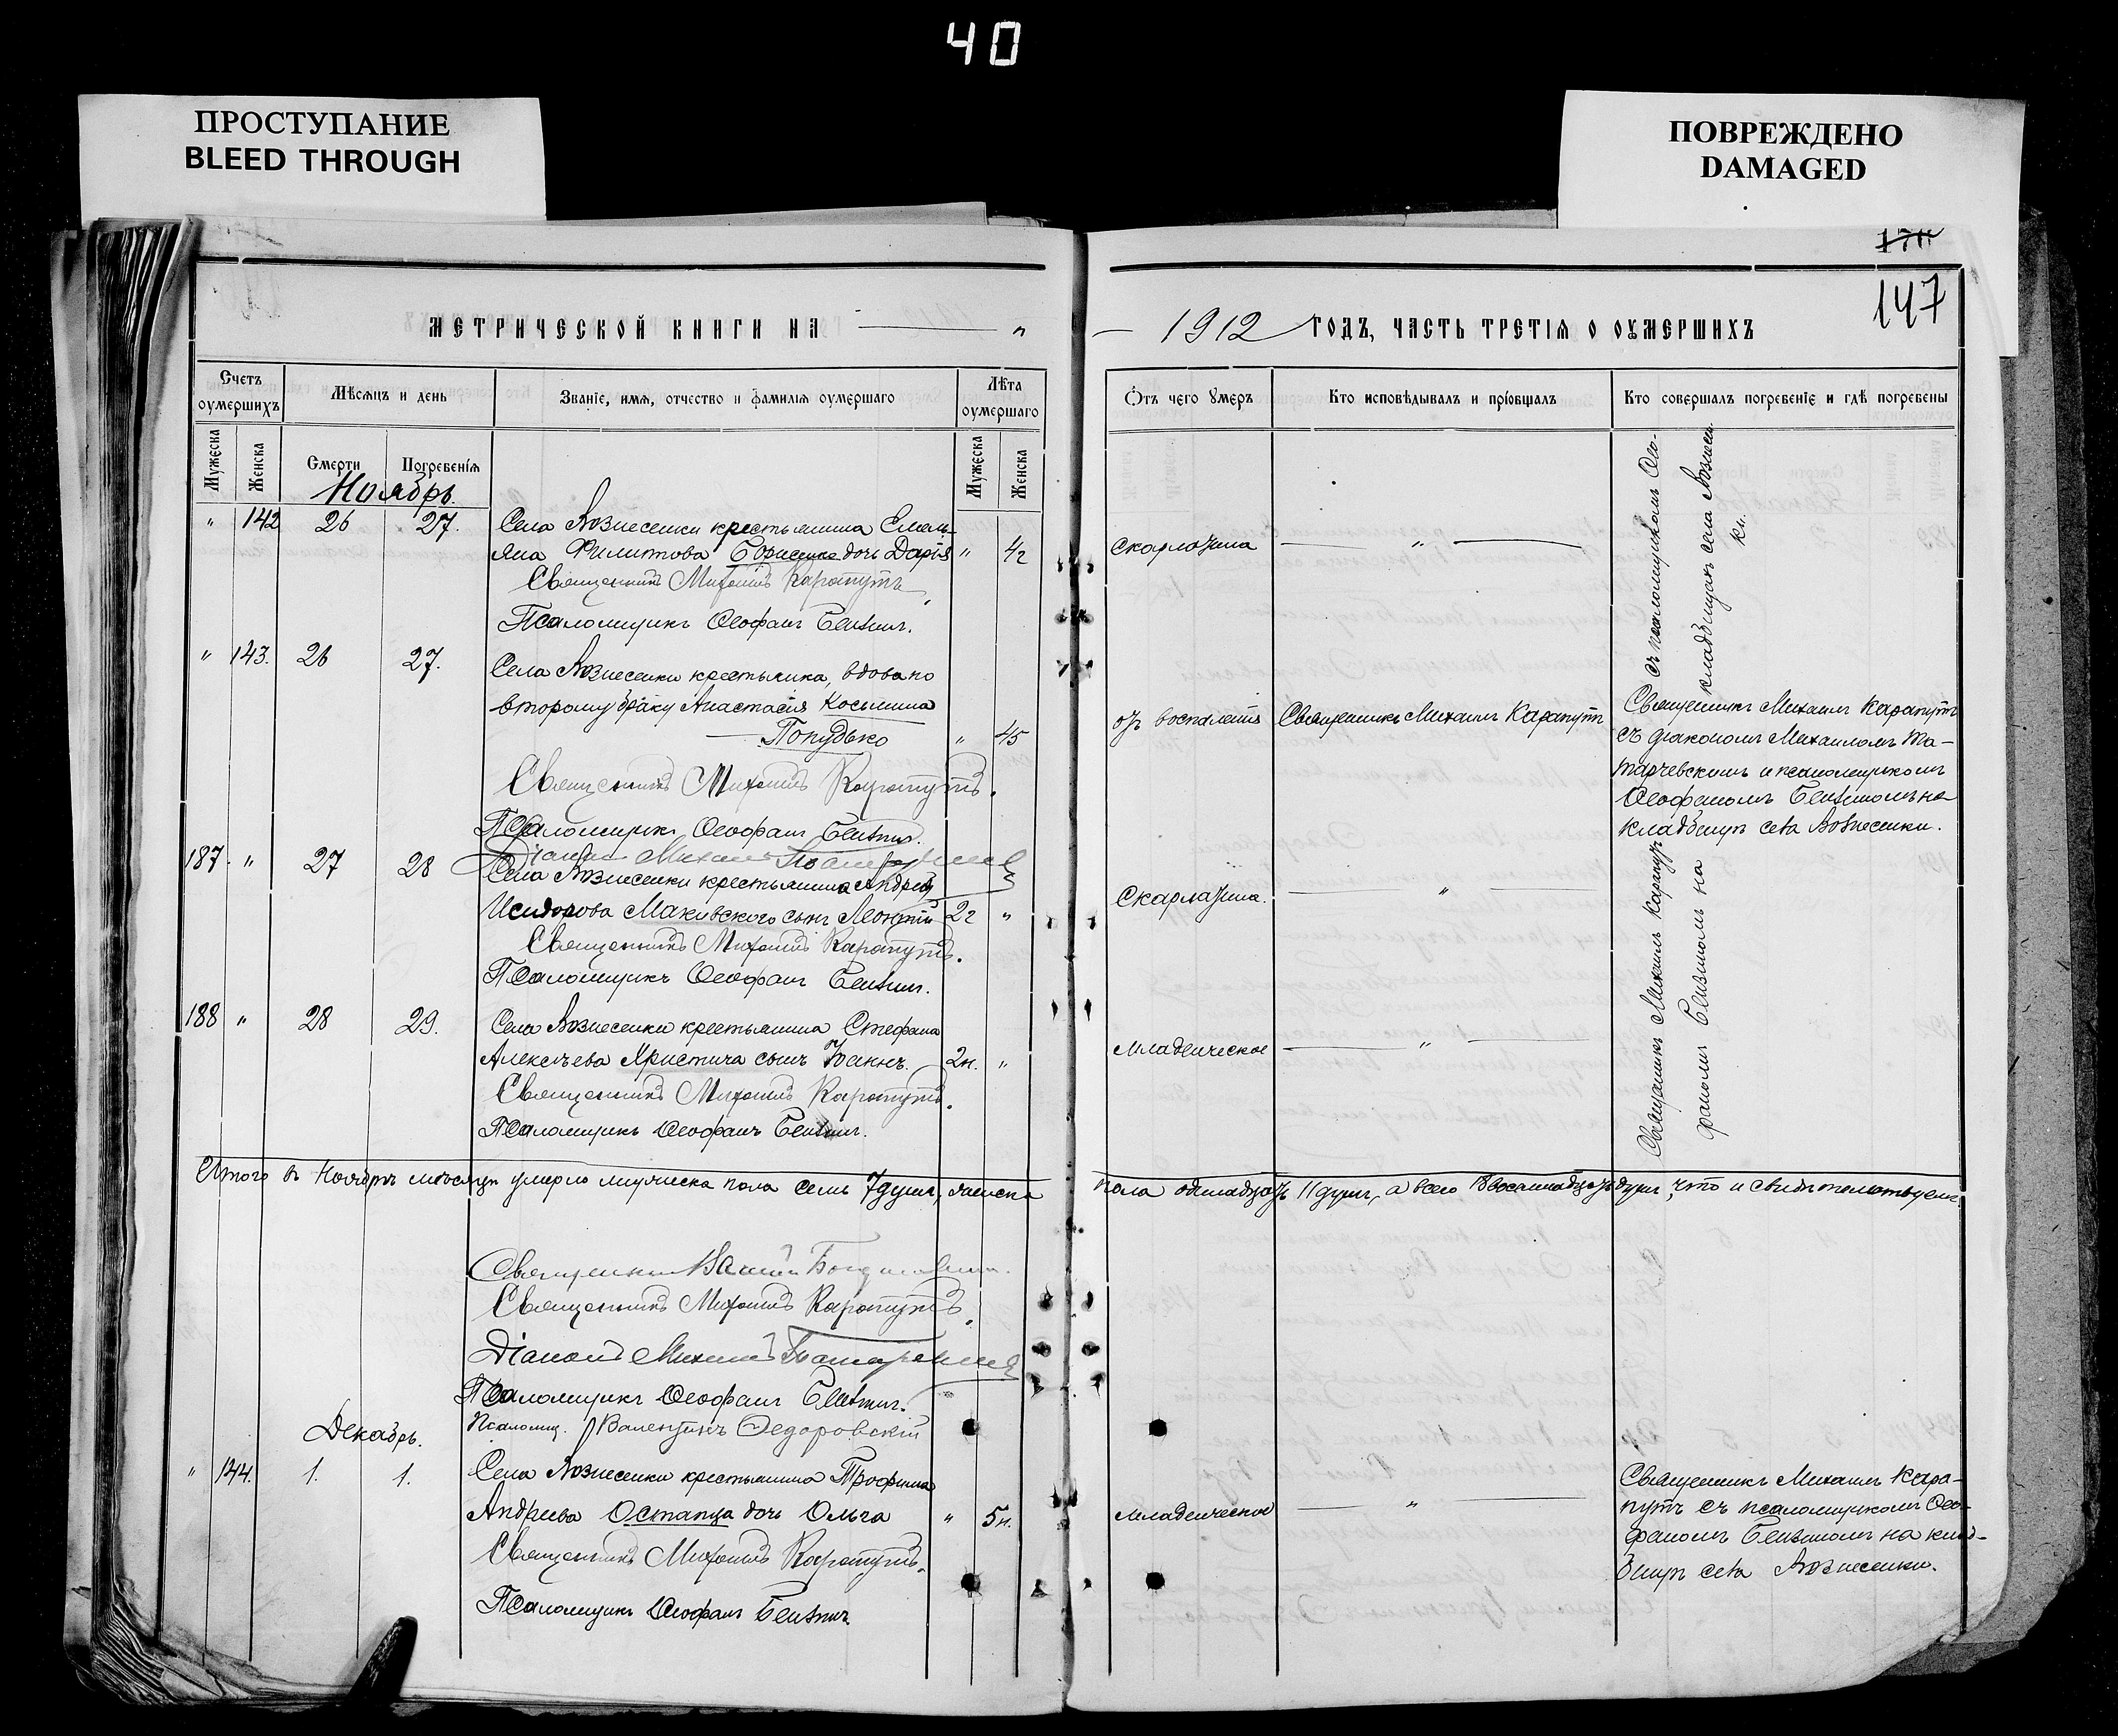 40
ПРОСТУПАНИЕ
BLEED THROUGH
ПОВРЕЖДЕНО
DAMAGED
147
МЕТРИЧЕСКОЙ КНИГИ НА „
1912 ГОДЪ, ЧАСТЬ ТРЕТІЯ О ОУМЕРШИХЪ
Счетъ оумершихъ
Мѣсяцъ и день
Званіе, имя, отчество и фамилія оумершаго
Лѣта оумершаго
Отъ чего умеръ
Кто исповѣдывалъ и пріобщалъ
Кто совершалъ погребеніе и гдѣ погребены
Мужеска
Женска
Смерти
Погребенія
Мужеска
Женска
Ноябрь.
„ 142 26 27. Села Вознесенки крестьянина Емель-
яна Филипова Борисенко дочь Дарія „ 4г Скарлатина „
Священникъ Михаилъ Карапутъ
Псаломщикъ Ѳеофанъ
„ 143. 26 27. Села Вознесенки крестьянка, вдова по
второму браку Анастасія Косьмина
Попудько „ 45
отъ воспаленія Священникъ Михаилъ Карапутъ
Священникъ Михаилъ Карапутъ
съ діакономъ Михаиломъ Та-
тарчевскимъ и псаломщикомъ
Ѳеофаномъ на
кладбищѣ села Вознесенки.
Священникъ Михаилъ Карапутъ.
Псаломщикъ Ѳеофанъ
Діаконъ Михаилъ
187. „ 27 28 Села Вознесенки крестьянина Андрея
Исидорова Маковского сынъ Леонтій 2г „ Скарлатина. „
Священникъ Михаилъ Карапутъ.
Псаломщикъ Ѳеофанъ
188 „ 28 29. Села Вознесенки крестьянина Стефана
Алексѣева Христича сынъ Іоаннъ. 2н. „ младенческое „
Священникъ Михаилъ Карапутъ.
Псаломщикъ Ѳеофанъ
Священникъ Михаилъ Карапутъ съ псаломщикомъ Ѳео-
фаномъ на кладбищѣ села Вознесен-
ки.
Итого въ Ноябрѣ мѣсяцѣ умерло мужеска пола семь 7 душъ, женска пола одинадцать 11 душъ, а всего 18 восемнадцать душъ, что и свидѣтельствуемъ
Священникъ
Священникъ Михаилъ Карапутъ.
Діаконъ Михаилъ
Псаломщикъ Ѳеофанъ
Псаломщ. Валентинъ Ѳедоровскій
Декабрь.
„ 144. 1. 1. Села Вознесенки крестьянина Трофима
Андреева Остапца дочь Ольга „ 5н. младенческое „
Священникъ Михаилъ Кара-
путъ съ псаломщикомъ Ѳео-
фаномъ на клад-
бищѣ села Вознесенки.
Священникъ Михаилъ Карапутъ.
Псаломщикъ Ѳеофанъ